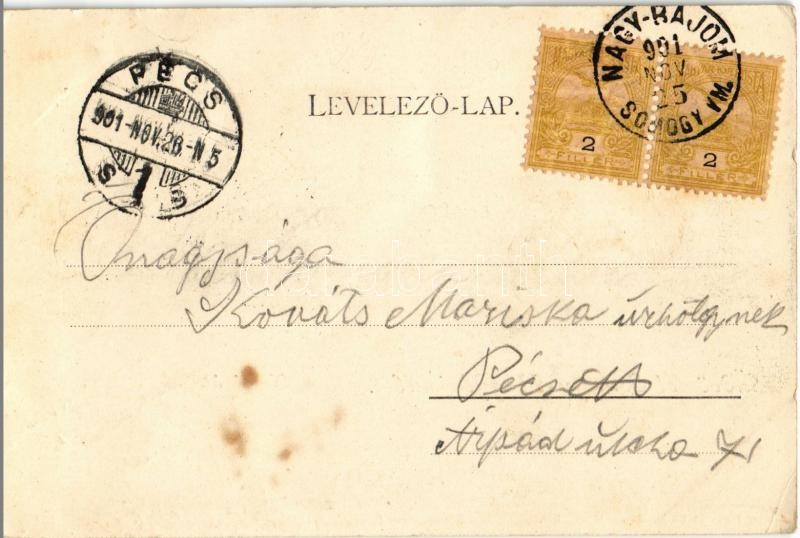 NAGY-BAJOM
901
NOV
25
SOMOGY VM.
PÉCS
901-NOV.26.-N5
1
LEVELEZŐ-LAP.
2 2
FILLÉR FILLÉR
Őnagysága
Kováts Mariska úrhölgynek
Pécsett
Árpád utcza 71
darabanth